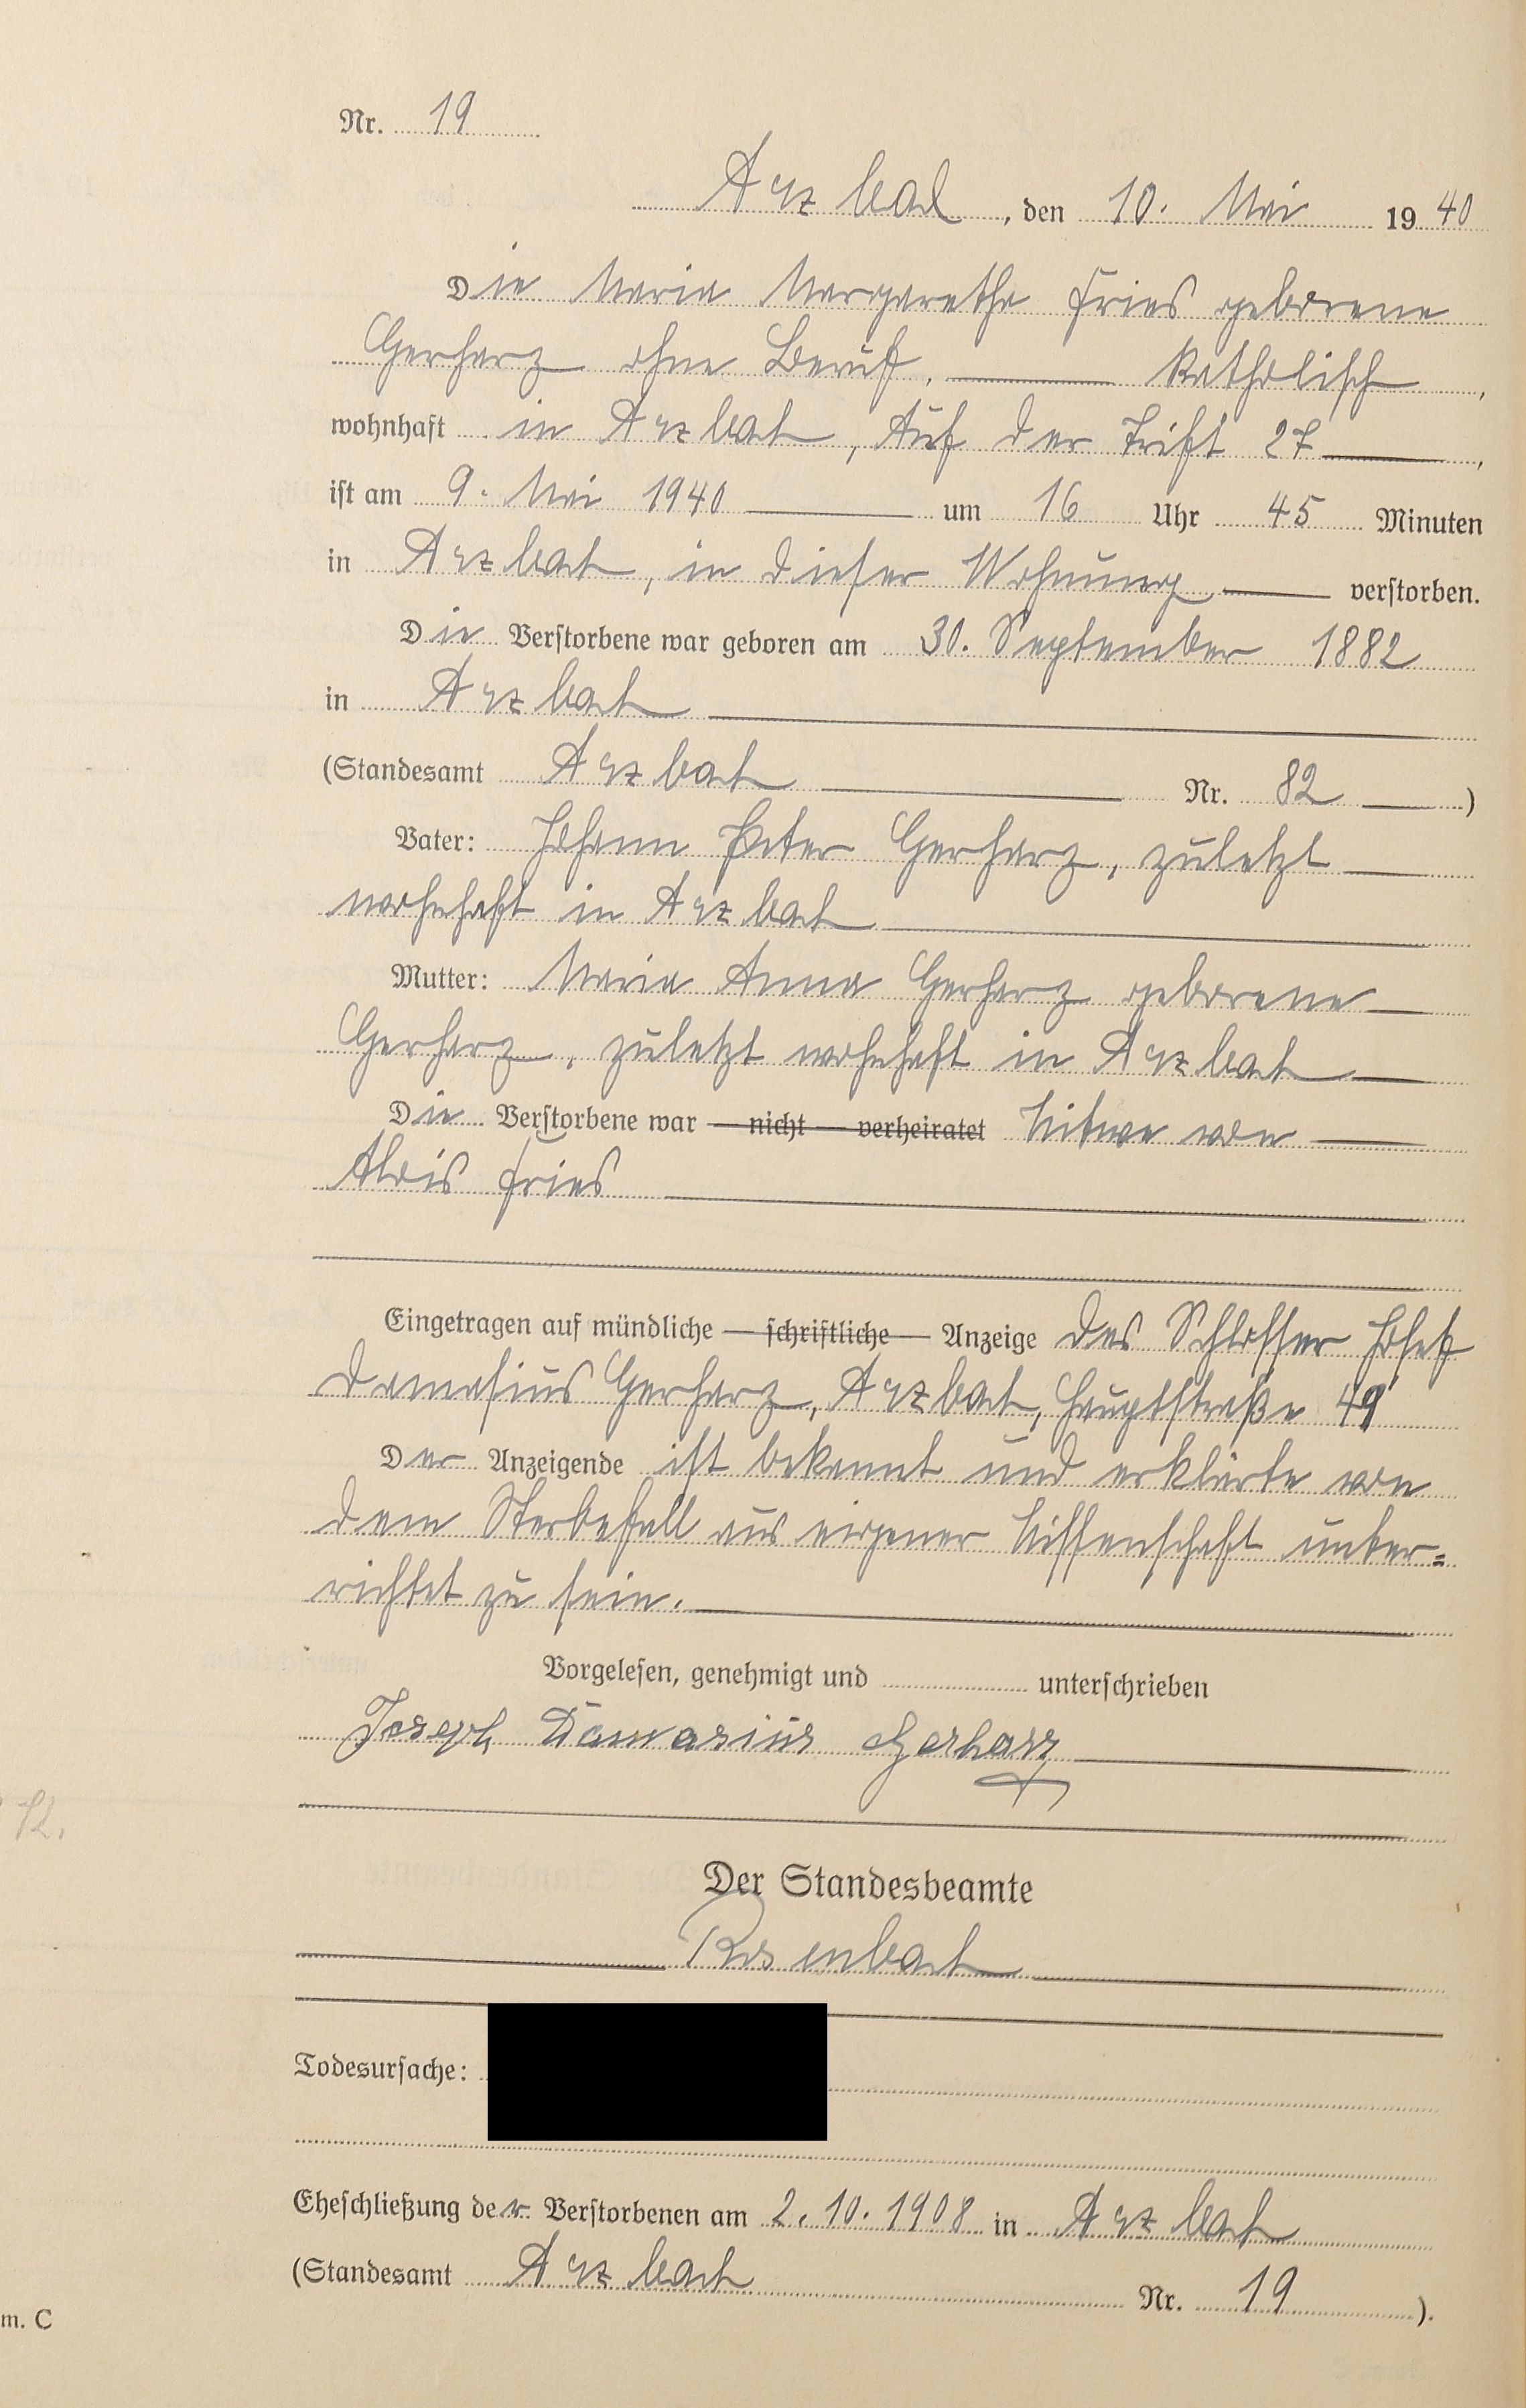 Nr. 19
Arzbach, den 10. Mai 1940
Die Maria Margaretha Fries geborene
Gerharz ohne Beruf, katholisch,
wohnhaft in Arzbach, Auf der Trift 27,
ist am 9. Mai 1940 um 16 Uhr 45 Minuten
in Arzbach, in dieser Wohnung verstorben.
Die Verstorbene war geboren am 30. September 1882
in Arzbach
(Standesamt Arzbach Nr. 82)
Vater: Johann Peter Gerharz, zuletzt
wohnhaft in Arzbach
Mutter: Maria Anna Gerharz geborene
Gerharz, zuletzt wohnhaft in Arzbach
Die Verstorbene war — nicht — verheiratet Witwe von
Alois Fries
Eingetragen auf mündliche — schriftliche — Anzeige des Schlosser Josef
Damasius Gerharz, Arzbach, Hauptstraße 49
Der Anzeigende ist bekannt und erklärte von
dem Sterbefall aus eigener Wissenschaft unter=
richtet zu sein.
Vorgelesen, genehmigt und unterschrieben
Joseph Damasius Gerharz
Der Standesbeamte
Rosenbach
Todesursache:
Eheschließung der Verstorbenen am 2.10.1908 in Arzbach
(Standesamt Arzbach Nr. 19).
m. C